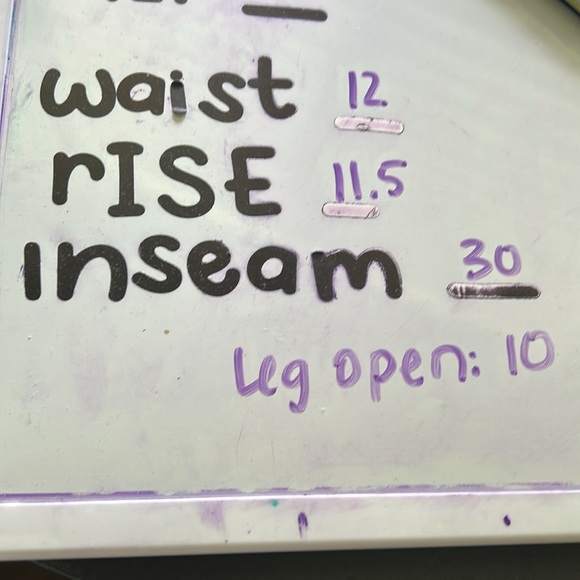 waist 12
rISE 11.5
Inseam 30
Leg open: 10